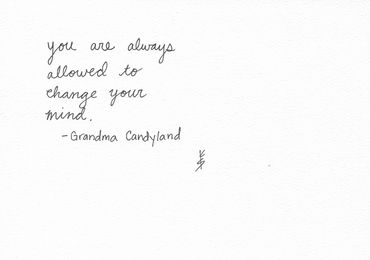 you are always
allowed to
change your
mind.
-Grandma Candyland